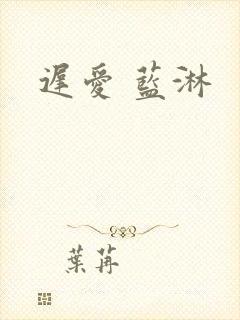 遲愛 藍淋
葉苒